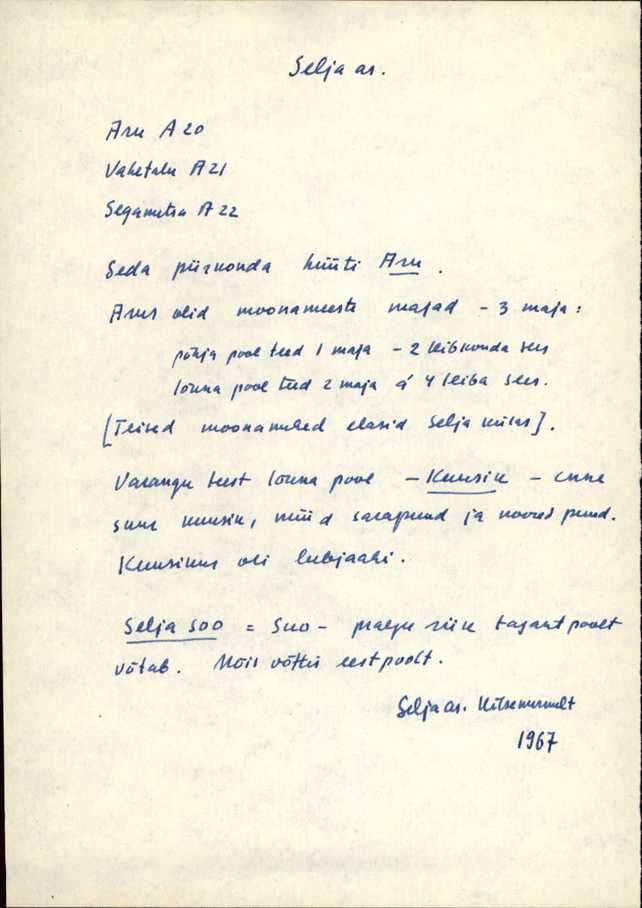 Selja as.
Aru A 20
Vahetalu A 21
Segametsa A 22
Seda piirkonda hüüti Aru.
Arus olid moonameeste majad – 3 maja:
põhja pool teed 1 maja – 2 leibkonda sees
lõuna pool teed 2 maja á 4 leiba sees.
[Teised moonamehed elasid Selja külas].
Varangu teest lõuna pool – Kuusik – enne
suur kuusik, nüüd sarapuud ja noored puud.
Kuusikus oli lubjaahi.
Selja soo = Suo – praegu riik tagant poolt
võtab. Mõis võttis eest poolt.
Selja as. Kitsemurult
1967